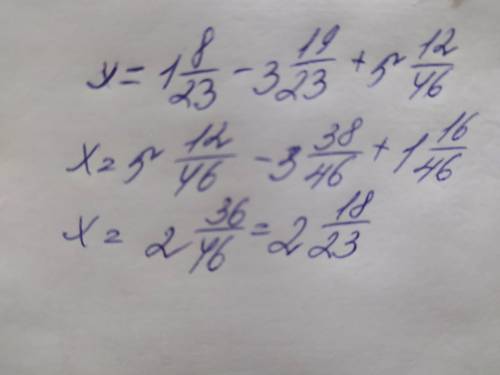 x = 1 8/23 - 3 19/23 + 5 12/46
x = 5 12/46 - 3 38/46 + 1 16/46
x = 2 36/46 = 2 18/23